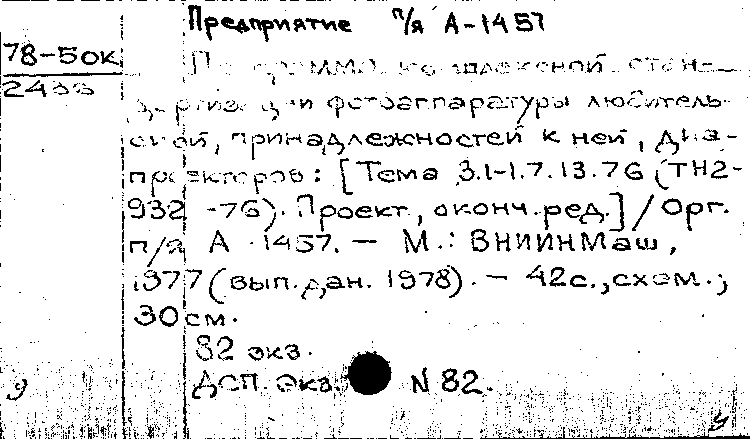 Предприятие п/я А-1457
78-50к
24
Программа комплексной стан-
дартизации фотоаппаратуры любитель-
ской, принадлежностей к ней, диа-
проекторов: [Тема 3.1-1.7.13.76 (ТН2-
932-76). Проект, оконч. ред.] / Орг.
п/я А-1457. — М.: ВНИИНМаш,
1977 (вып. дан. 1978). — 42с., схем.;
30см.
82 экз.
ДСП. Экз. N 82.
9